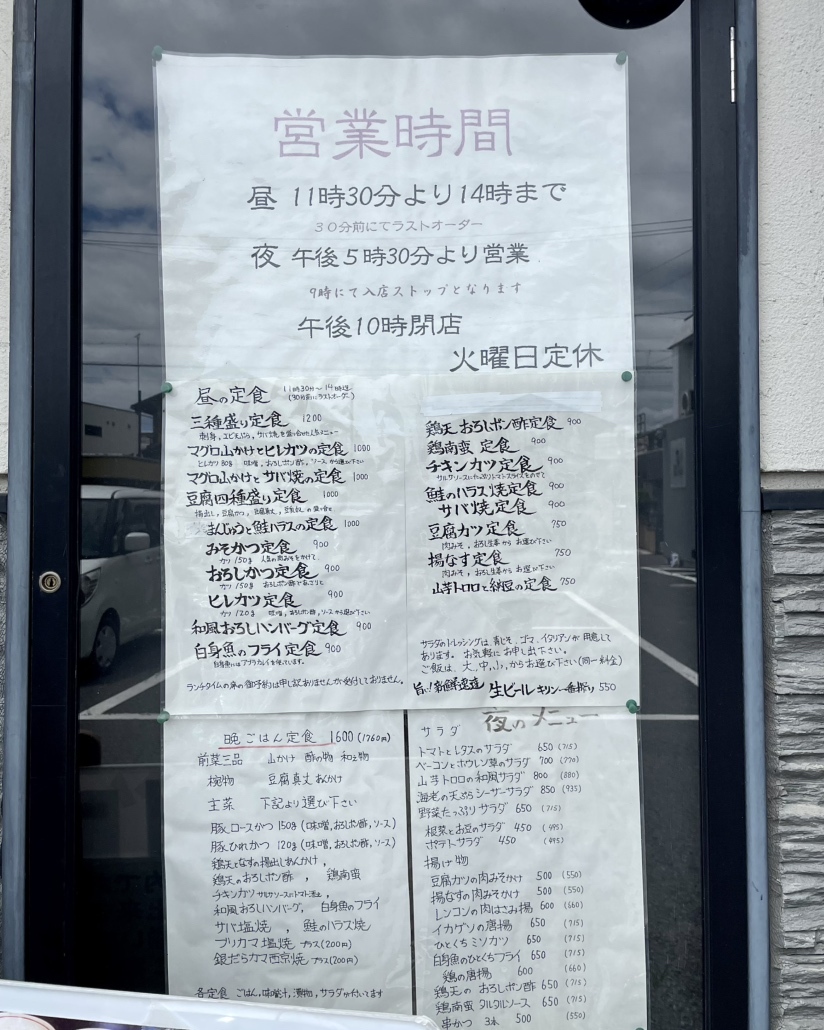 営業時間
昼 11時30分より14時まで
30分前にてラストオーダー
夜 午後5時30分より営業
9時にて入店ストップとなります
午後10時閉店
火曜日定休
昼の定食 11時30分〜14時迄
(30分前にラストオーダー)
三種盛り定食 1200
マグロ山かけとヒレカツの定食 1000
ヒレカツ80g 味噌,おろしポン酢,ソースから選び下さい
マグロ山かけとサバ焼の定食 1000
豆腐四種盛り定食 1000
まんじゅうと鮭ハラスの定食 1000
みそかつ定食 900
カツ150g 人気の肉みそをかけて
おろしかつ定食 900
カツ150g おろしポン酢であっさりと
ヒレカツ定食 900
カツ120g 味噌,おろしポン酢,ソースから選び下さい
和風おろしハンバーグ定食 900
白身魚のフライ定食 900
ランチタイムの席の御予約は申し訳ありませんが受付しておりません。
鶏天おろしポン酢定食 900
鶏南蛮定食 900
チキンカツ定食 900
鮭のハラス焼定食 900
サバ焼定食 900
豆腐カツ定食 750
肉みそ,おろし生姜からお選び下さい
揚げなす定食 750
肉みそ,おろし生姜からお選び下さい
山芋トロロと納豆の定食 750
サラダのドレッシングは,青じそ,ゴマ,イタリアンが用意して
あります。お気軽にお申し出下さい。
ご飯は、大,中,小,からお選び下さい(同一料金)
旨い!新鮮速達 生ビール キリン一番搾り 550
晩ごはん定食 1600(1760円)
前菜三品 山かけ 酢の物 和え物
椀物 豆腐真丈あんかけ
主菜 下記より選び下さい
豚ロースかつ 150g (味噌,おろしポン酢,ソース)
豚ひれかつ 120g (味噌,おろしポン酢,ソース)
鶏天となすの揚出しあんかけ,
鶏天のおろしポン酢, 鶏南蛮
チキンカツ サルサソースにトマト添え,
和風おろしハンバーグ, 白身魚のフライ
サバ塩焼, 鮭のハラス焼
ブリカマ塩焼 プラス(200円)
銀だらカマ西京焼 プラス(200円)
各定食 ごはん,味噌汁,漬物,サラダが付いてます
夜のメニュー
サラダ
トマトとレタスのサラダ 650 (715)
ベーコンとホウレン草のサラダ 700 (770)
山芋トロロの和風サラダ 800 (880)
海老の天ぷらシーザーサラダ 850 (935)
野菜たっぷりサラダ 650 (715)
根菜とお豆のサラダ 450 (495)
ポテトサラダ 450 (495)
揚げ物
豆腐カツの肉みそかけ 500 (550)
揚なすの肉みそかけ 500 (550)
レンコンの肉はさみ揚 600 (660)
イカゲソの唐揚 650 (715)
ひとくちミソカツ 650 (715)
白身魚のひとくちフライ 650 (715)
鶏の唐揚 600 (660)
鶏天のおろしポン酢 650 (715)
鶏南蛮タルタルソース 650 (715)
串かつ 3本 500 (550)